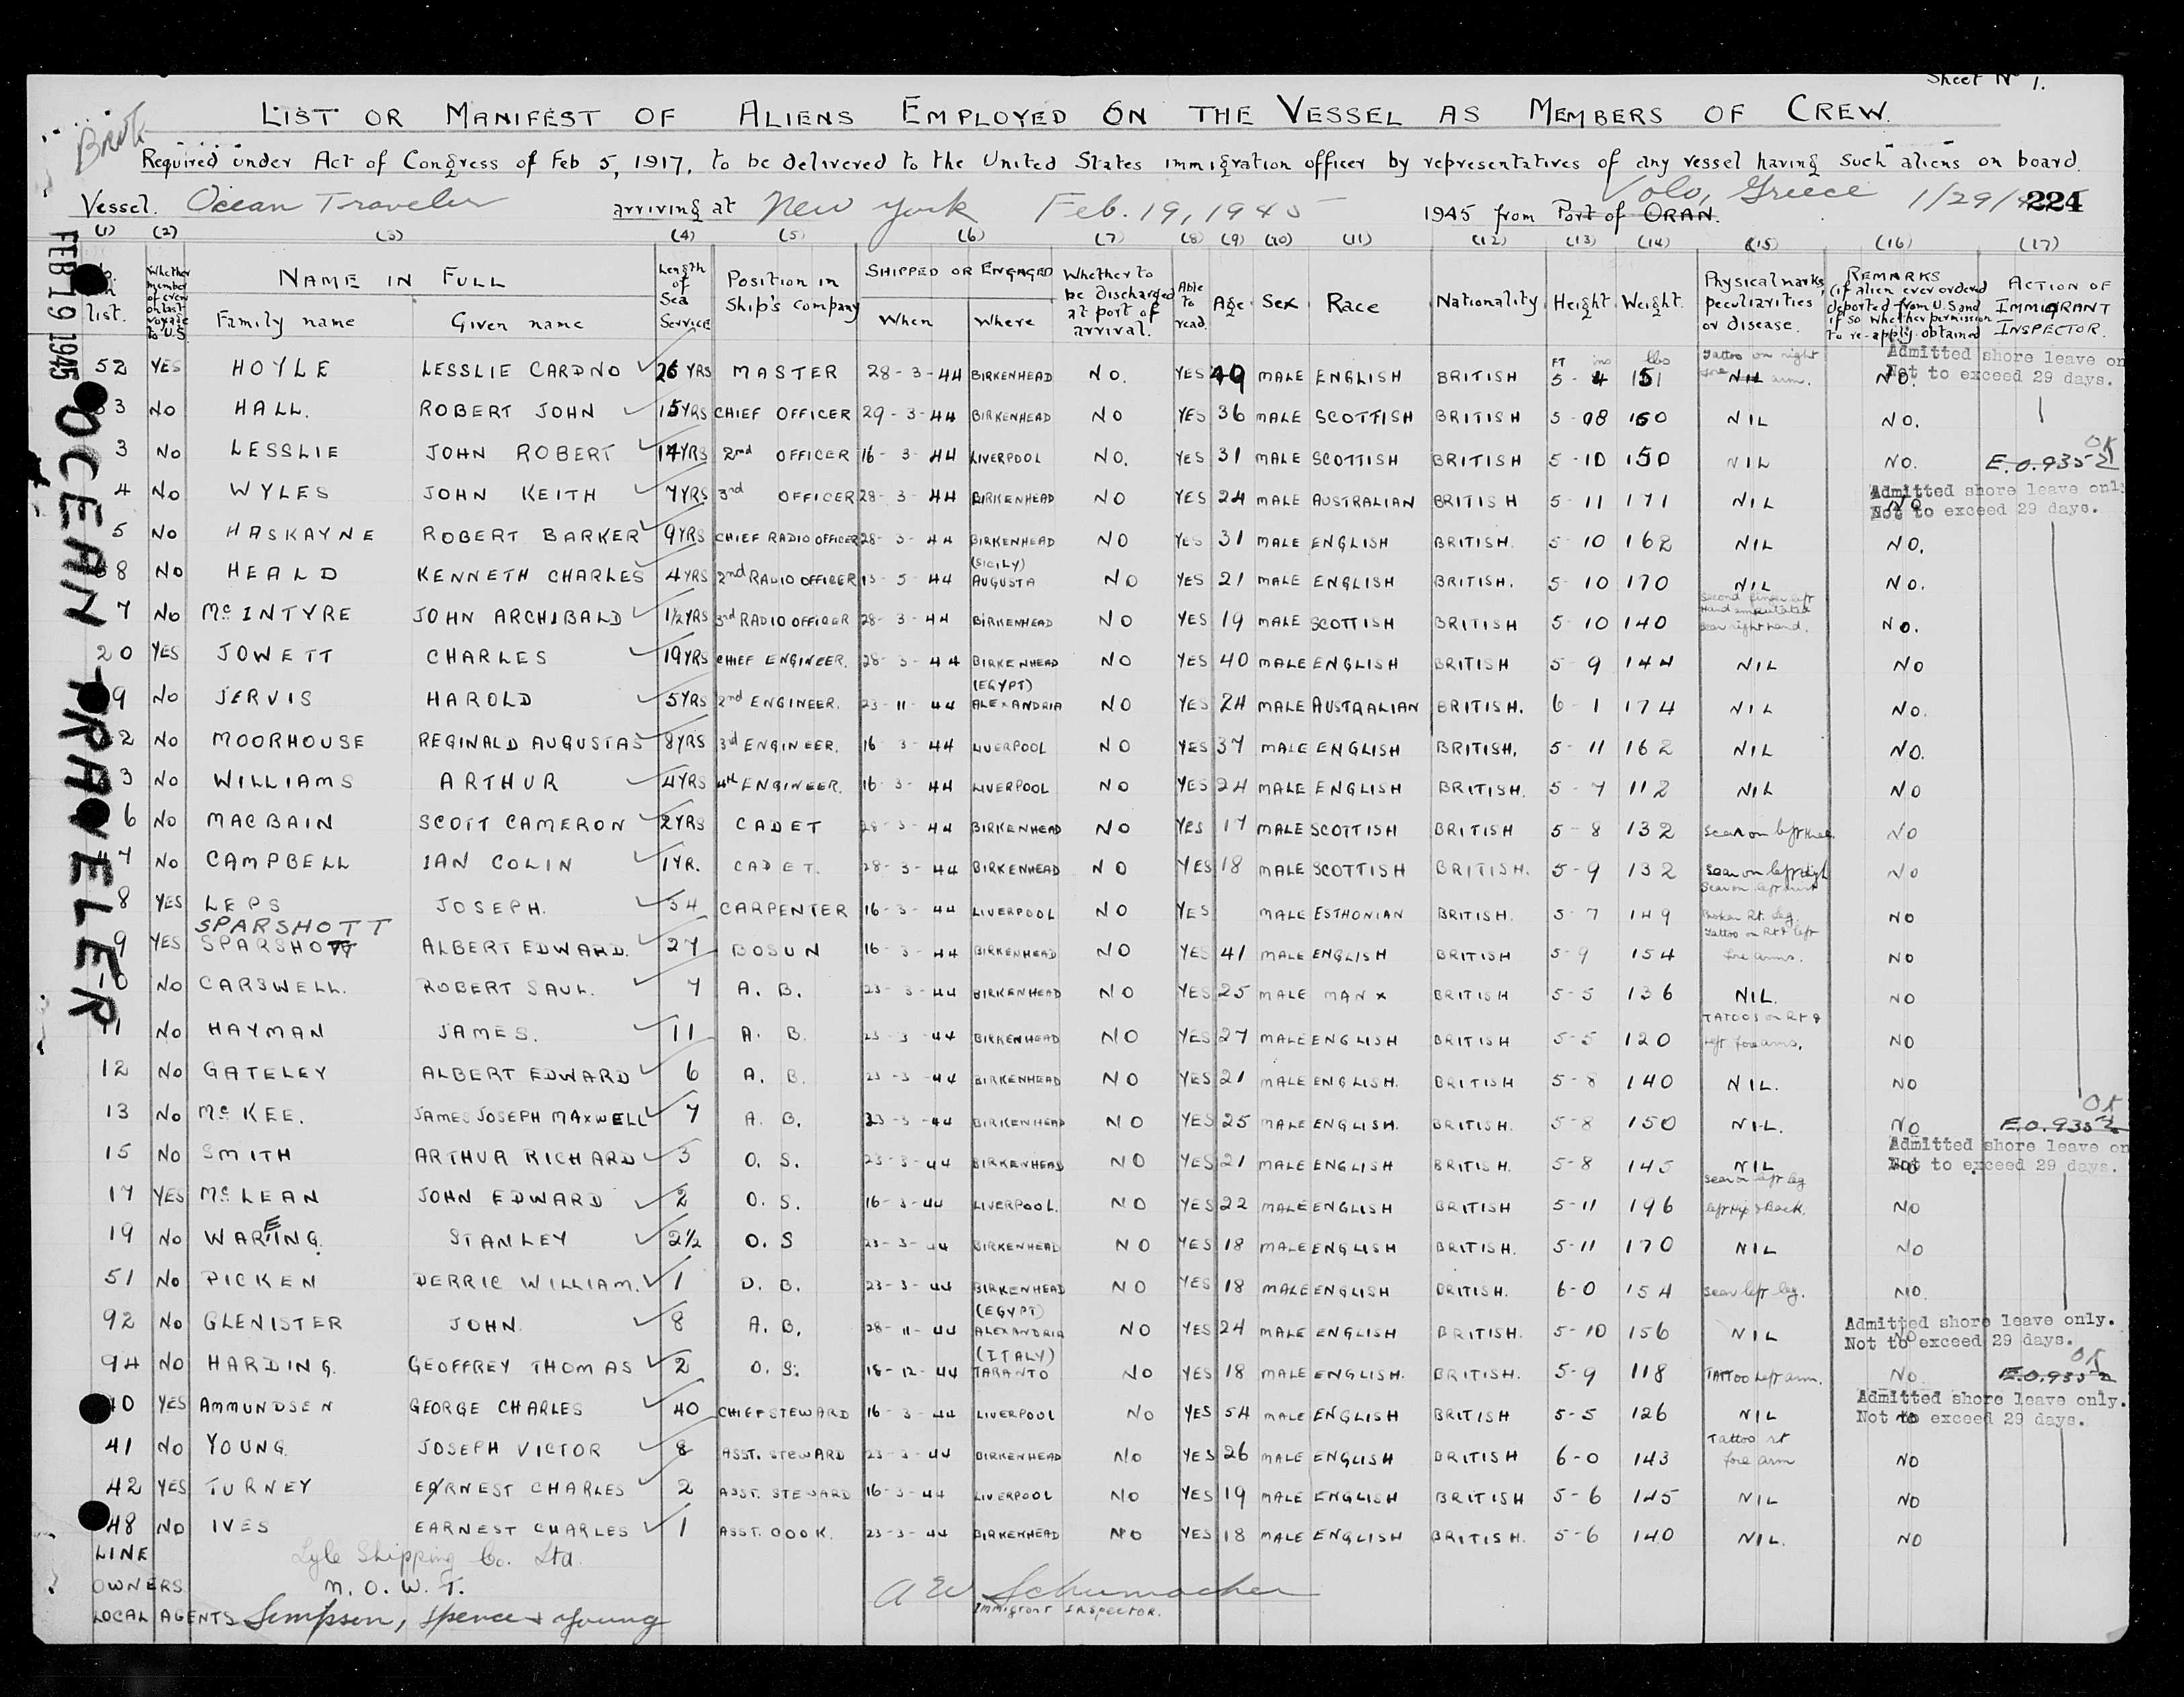 Sheet No 1.
LIST OR MANIFEST OF ALIENS EMPLOYED ON THE VESSEL AS MEMBERS OF CREW.
Required under Act of Congress of Feb 5, 1917, to be delivered to the United States immigration officer by representatives of any vessel having such aliens on board.
Vessel. Ocean Traveler arriving at New York Feb. 19, 1945 1945 from Port of ORAN. Volo, Greece 1/29/ 224
(1) (2) (3) (4) (5) (6) (7) (8) (9) (10) (11) (12) (13) (14) (15) (16) (17)
list. Whether member of crew on last voyage to U.S. NAME IN FULL Family name Given name Length of Sea Service Position in Ship's company SHIPPED OR ENGAGED When Where Whether to be discharged at port of arrival. Able to read. Age Sex Race Nationality Height Weight. Physical marks, peculiarities or disease. REMARKS (if alien ever ordered deported from U.S. and if so whether permission to re-apply obtained ACTION OF IMMIGRANT INSPECTOR.
FEB 19 1945
OCEAN TRAVELER
52 YES HOYLE LESSLIE CARDNO 26 YRS MASTER 28-3-44 BIRKENHEAD NO. YES 49 MALE ENGLISH BRITISH FT ins 5-4 lbs 151 Tattoo on right fore arm. NIL NO. Admitted shore leave on Not to exceed 29 days.
3 NO HALL. ROBERT JOHN 15YRS CHIEF OFFICER 29-3-44 BIRKENHEAD NO YES 36 MALE SCOTTISH BRITISH 5-08 160 NIL NO.
3 NO LESSLIE JOHN ROBERT 14YRS 2nd OFFICER 16-3-44 LIVERPOOL NO. YES 31 MALE SCOTTISH BRITISH 5-10 150 NIL NO. E.O.9352 OK
4 NO WYLES JOHN KEITH 7YRS 3rd OFFICER 28-3-44 BIRKENHEAD NO YES 24 MALE AUSTRALIAN BRITISH 5-11 171 NIL NO Admitted shore leave only Not to exceed 29 days.
5 NO HASKAYNE ROBERT BARKER 9YRS CHIEF RADIO OFFICER 28-3-44 BIRKENHEAD NO YES 31 MALE ENGLISH BRITISH. 5-10 162 NIL NO.
8 NO HEALD KENNETH CHARLES 4YRS 2nd RADIO OFFICER 13-5-44 (SICILY) AUGUSTA NO YES 21 MALE ENGLISH BRITISH. 5-10 170 NIL NO.
7 NO McINTYRE JOHN ARCHIBALD 1½YRS 3rd RADIO OFFICER 28-3-44 BIRKENHEAD NO YES 19 MALE SCOTTISH BRITISH 5-10 140 Second finger left Hand amputated scar right hand. NO.
20 YES JOWETT CHARLES 19YRS CHIEF ENGINEER. 28-3-44 BIRKENHEAD NO YES 40 MALE ENGLISH BRITISH 5-9 144 NIL NO
9 NO JERVIS HAROLD 5YRS 2nd ENGINEER. 23-11-44 (EGYPT) ALEXANDRIA NO YES 24 MALE AUSTRALIAN BRITISH. 6-1 174 NIL NO.
2 NO MOORHOUSE REGINALD AUGUSTAS 8YRS 3rd ENGINEER. 16-3-44 LIVERPOOL NO YES 37 MALE ENGLISH BRITISH. 5-11 162 NIL NO.
3 NO WILLIAMS ARTHUR 4YRS 4th ENGINEER. 16-3-44 LIVERPOOL NO YES 24 MALE ENGLISH BRITISH. 5-7 112 NIL NO
6 NO MACBAIN SCOTT CAMERON 2YRS CADET 28-3-44 BIRKENHEAD NO YES 17 MALE SCOTTISH BRITISH 5-8 132 Scar on left knee. NO
7 NO CAMPBELL IAN COLIN 1YR. CADET. 28-3-44 BIRKENHEAD NO YES 18 MALE SCOTTISH BRITISH. 5-9 132 Scar on left thigh NO
8 YES LEPS JOSEPH. 34 CARPENTER 16-3-44 LIVERPOOL NO YES MALE ESTHONIAN BRITISH. 5-7 149 Scar on left Broken Rt. leg. NO
SPARSHOTT
9 YES SPARSHOTT ALBERT EDWARD. 27 BOSUN 16-3-44 BIRKENHEAD NO YES 41 MALE ENGLISH BRITISH 5-9 154 Tattoo on Rt & left fore arms. NO
10 NO CARSWELL. ROBERT SAUL. 7 A. B. 23-3-44 BIRKENHEAD NO YES 25 MALE MANX BRITISH 5-5 136 NIL. NO
11 NO HAYMAN JAMES. 11 A. B. 23-3-44 BIRKENHEAD NO YES 27 MALE ENGLISH BRITISH 5-5 120 TATOOS on Rt & left fore arms. NO
12 NO GATELEY ALBERT EDWARD 6 A. B. 23-3-44 BIRKENHEAD NO YES 21 MALE ENGLISH. BRITISH 5-8 140 NIL. NO
13 NO McKEE. JAMES JOSEPH MAXWELL 7 A. B. 23-3-44 BIRKENHEAD NO YES 25 MALE ENGLISH. BRITISH. 5-8 150 NIL. NO E.O.9352 OK
15 NO SMITH ARTHUR RICHARD 3 O. S. 23-3-44 BIRKENHEAD NO YES 21 MALE ENGLISH BRITISH. 5-8 145 NIL NO Admitted shore leave on Not to exceed 29 days.
17 YES McLEAN JOHN EDWARD 2 O. S. 16-3-44 LIVERPOOL. NO YES 22 MALE ENGLISH BRITISH 5-11 196 Scar on left leg left Hip & Back. NO
19 NO WAREING. STANLEY 2½ O. S 23-3-44 BIRKENHEAD NO YES 18 MALE ENGLISH BRITISH. 5-11 170 NIL NO
51 NO PICKEN DERRIC WILLIAM. 1 D. B. 23-3-44 BIRKENHEAD NO YES 18 MALE ENGLISH BRITISH. 6-0 154 Scar left leg. NO.
92 NO GLENISTER JOHN. 8 A. B. 28-11-44 (EGYPT) ALEXANDRIA NO YES 24 MALE ENGLISH BRITISH. 5-10 156 NIL NO Admitted shore leave only. Not to exceed 29 days.
94 NO HARDING. GEOFFREY THOMAS 2 O. S. 18-12-44 (ITALY) TARANTO NO YES 18 MALE ENGLISH. BRITISH. 5-9 118 TATTOO Left arm. NO E.O.9352 OK
40 YES AMMUNDSEN GEORGE CHARLES 40 CHIEF STEWARD 16-3-44 LIVERPOOL NO YES 54 MALE ENGLISH BRITISH 5-5 126 NIL NO Admitted shore leave only. Not to exceed 29 days.
41 NO YOUNG. JOSEPH VICTOR 8 ASST. STEWARD 23-3-44 BIRKENHEAD NO YES 26 MALE ENGLISH BRITISH 6-0 143 Tattoo rt fore arm NO
42 YES TURNEY EARNEST CHARLES 2 ASST. STEWARD 16-3-44 LIVERPOOL NO YES 19 MALE ENGLISH BRITISH 5-6 145 NIL NO
48 NO IVES EARNEST CHARLES 1 ASST. COOK. 23-3-44 BIRKENHEAD NO YES 18 MALE ENGLISH BRITISH. 5-6 140 NIL. NO
LINE Lyle Shipping Co. Ltd.
OWNERS M. O. W. T.
LOCAL AGENTS Simpson, Spence & Young
A W Schumacher
Immigrant Inspector.